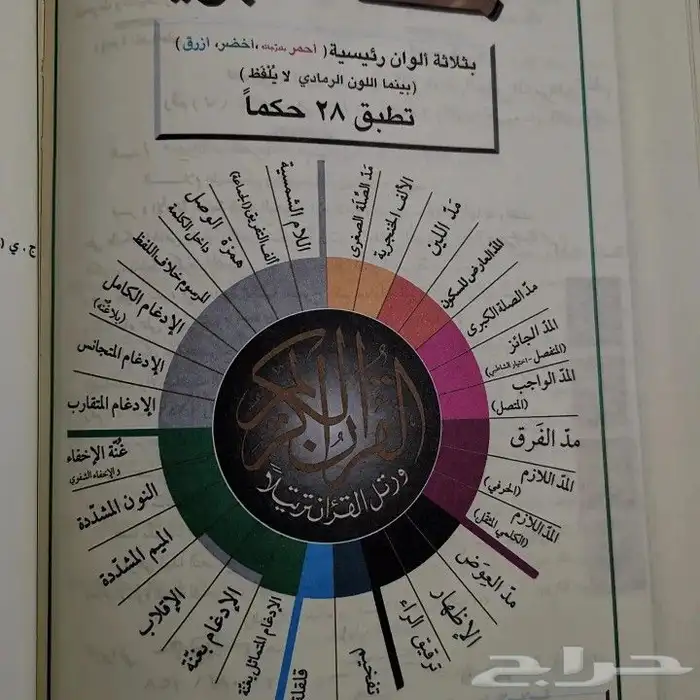 بثلاثة ألوان رئيسية ( أحمر بتدرجاته ،أخضر، أزرق )
( بينما اللون الرمادي لا يُلفَظ )
تطبق ٢٨ حكماً
مَدّ الصِّلة الصغرى
الألف الخنجرية
مَدّ اللين
المدّ العارض للسكون
مدّ الصلة الكبرى
المدّ الجائز
(المنفصل - اختيار الشاطبي)
المدّ الواجب
(المتصل)
مدّ الفَرق
المدّ اللازم
(الحرفي)
المدّ اللازم
(الكلمي المثقل)
مدّ العِوَض
الإظهار
ترقيق الراء
تفخيم
قلقلة
الإدغام المتماثل بغنّة
الإدغام بغنّة
الإقلاب
الميم المشدّدة
النون المشدّدة
غُنّة الإخفاء
والإخفاء الشفوي
الإدغام المتقارب
الإدغام المتجانس
الإدغام الكامل
(بلاغُنّة)
المرسوم خلاف اللفظ
همزة الوصل
داخل الكلمة
ألف التفريق (الجماعة)
اللام الشمسية
القرآن الكريم
ورتل القرآن ترتيلاً
ج . ي (
حراج